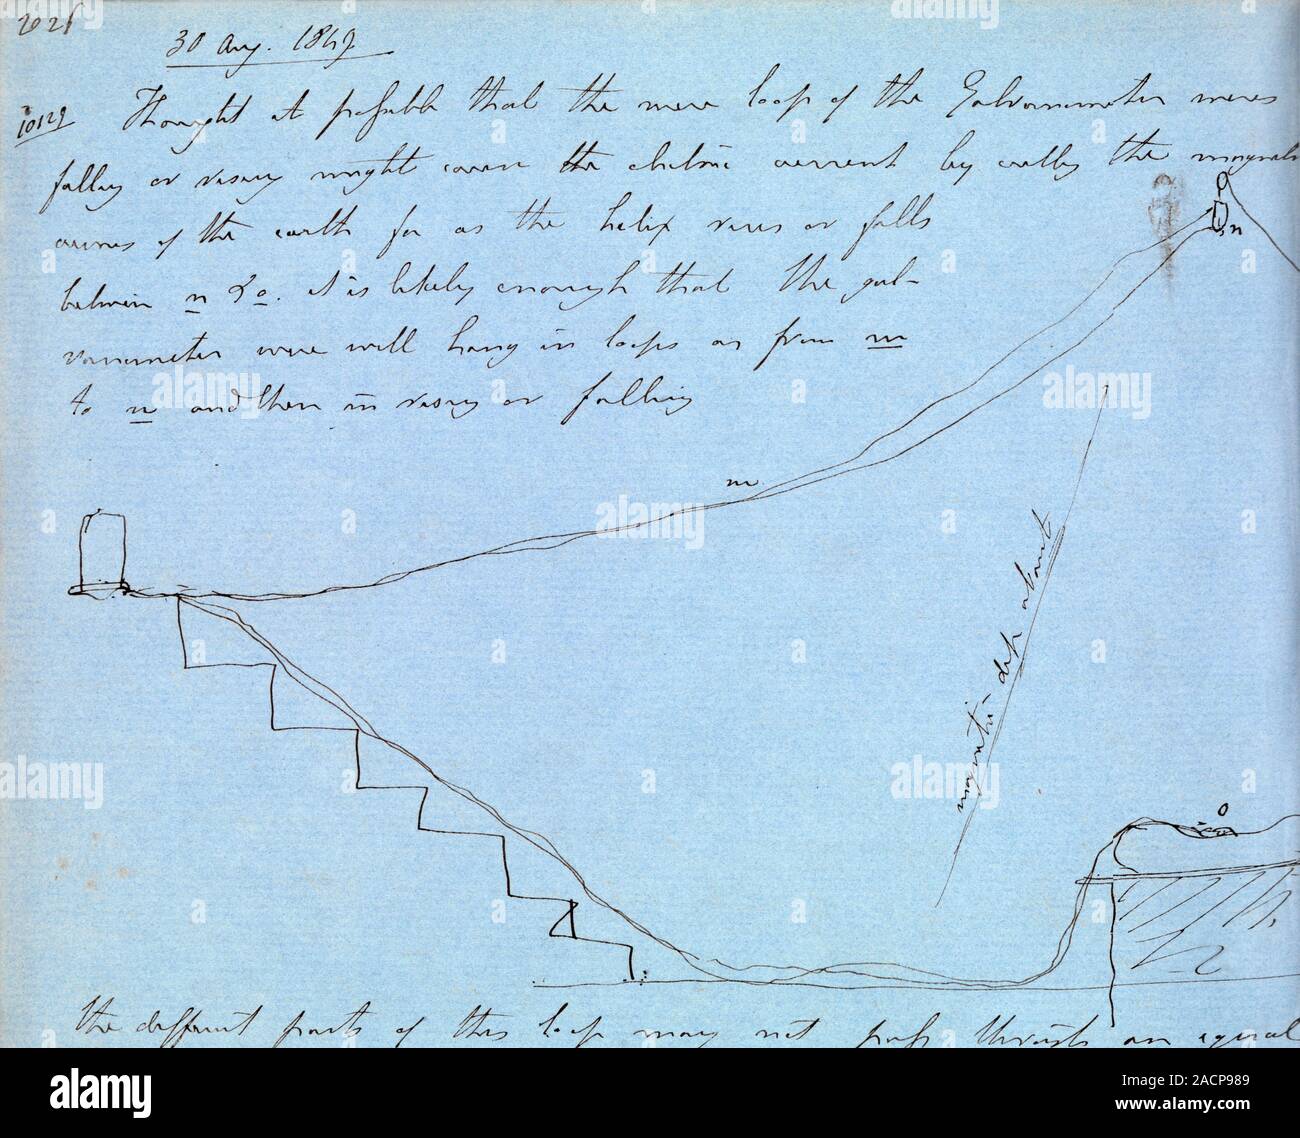 30 Aug. 1849
10129
Thought it possible that the mere loop of the Galvanometer wires
falling or rising might cause the electric current by cutting the magnetic
curves of the earth for as the helix rises or falls
between n & o. it is likely enough that the gal-
vanometer wire will hang in loops as from m
to n and then in rising or falling
n
m
magnetic dip about
o
the different parts of this loop may not pass through an equal
alamy
a
Image ID: 2ACP989
www.alamy.com